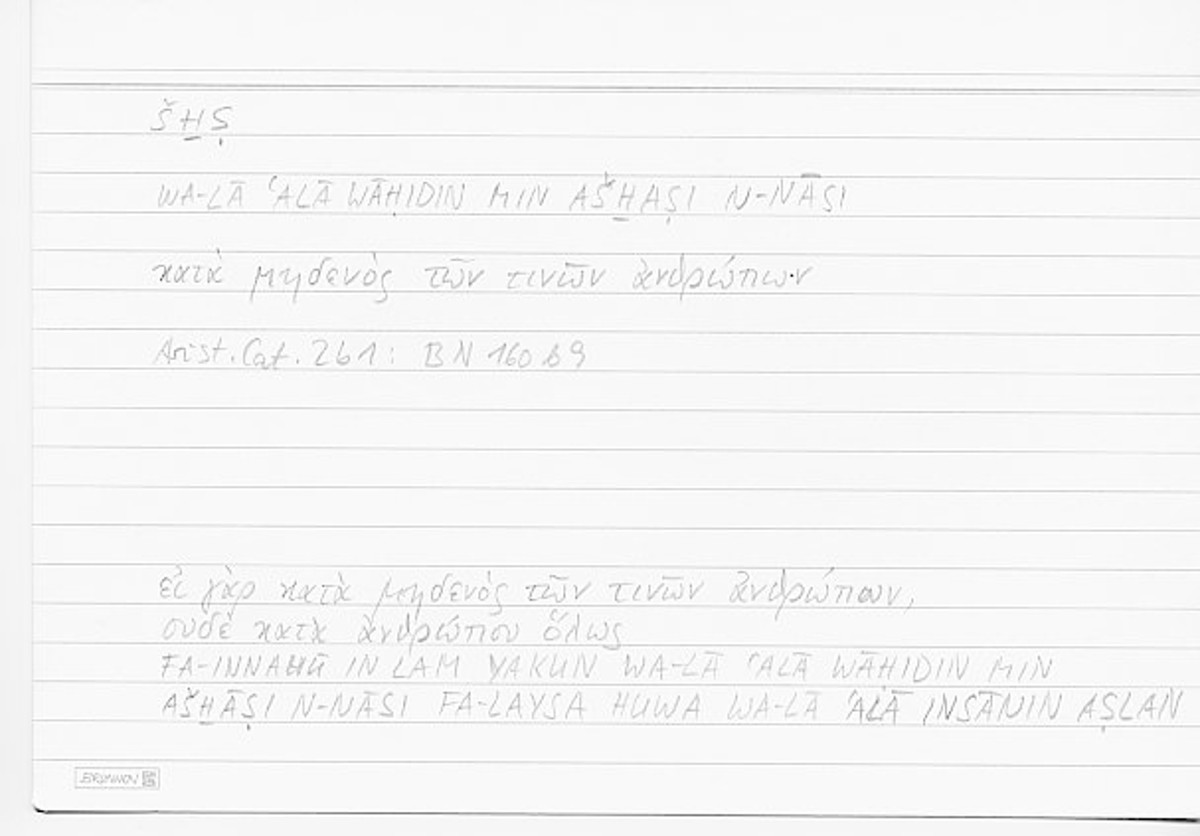 Š H̱ Ṣ
WA-LĀ ʿALĀ WĀḤIDIN MIN AŠH̱AṢI N-NĀSI
κατὰ μηδενὸς τῶν τινῶν ἀνθρώπων
Arist. Cat. 2b1: BN 160b9
εἰ γὰρ κατὰ μηδενὸς τῶν τινῶν ἀνθρώπων,
οὐδὲ κατὰ ἀνθρώπου ὅλως
FA-INNAHŪ IN LAM YAKUN WA-LĀ ʿALĀ WĀHIDIN MIN
AŠH̱ĀṢI N-NĀSI FA-LAYSA HUWA WA-LĀ ʿALĀ INSĀNIN AṢLAN
BRUNNEN